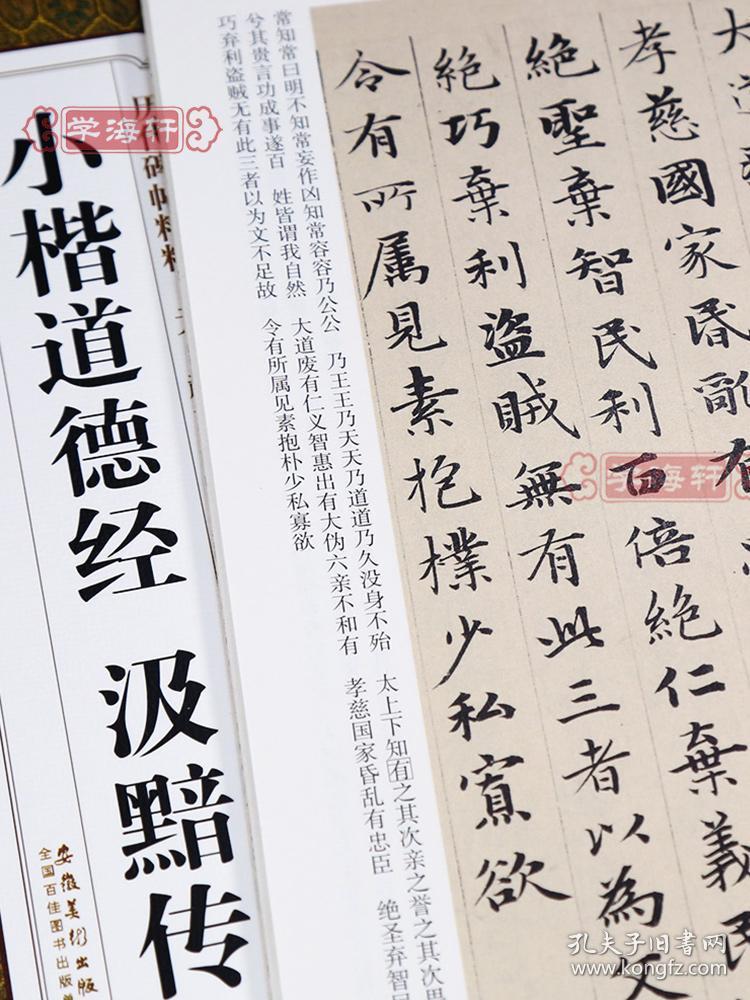 大道
孝慈國家昏亂有
絕聖棄智民利百倍絕仁棄義民
絕巧棄利盜賊無有此三者以為文
令有所属見素抱樸少私寡欲
常知常曰明不知常妄作凶知常容容乃公公 乃王王乃天天乃道道乃久没身不殆 太上下知有之其次亲之誉之其次畏
兮其贵言功成事遂百 姓皆谓我自然 大道废有仁义智惠出有大伪六亲不和有 孝慈国家昏乱有忠臣 绝圣弃智民
巧弃利盗贼无有此三者以为文不足故 令有所属见素抱朴少私寡欲
小楷道德经 汲黯传
安徽美术出版
全国百佳图书出版
学海轩
学海轩
孔夫子旧书网
www.kongfz.com